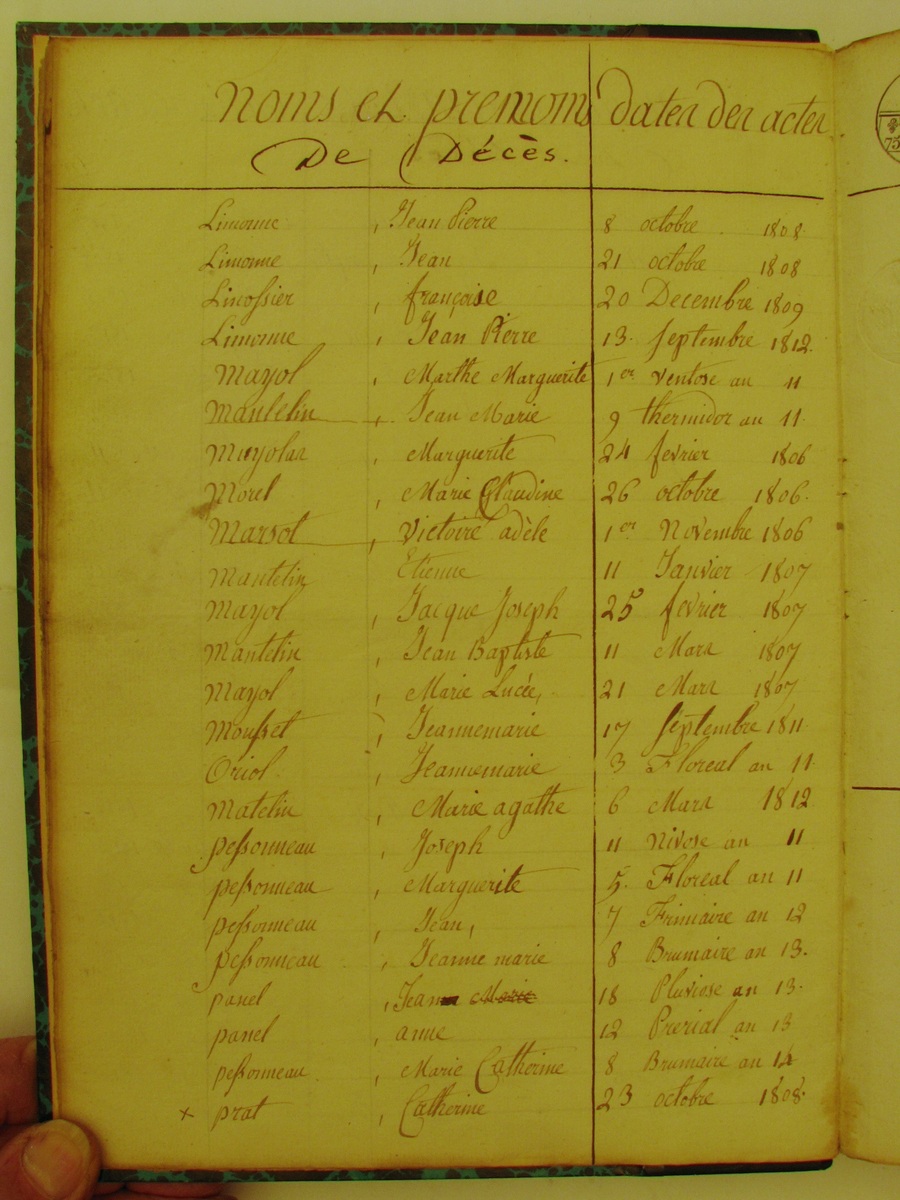 noms et prenoms dates des actes
De Décès.
Limonne , Jean Pierre 8 octobre 1808
Limonne , Jean 21 octobre 1808
Linossier , françoise 20 Decembre 1809
Limonne , Jean Pierre 13. septembre 1812.
Mayol , Marthe Marguerite 1er ventose an 11
Mantelin , Jean Marie 9 thermidor an 11.
Mayolas , Marguerite 24 fevrier 1806
Morel , Marie Claudine 26 octobre 1806.
Marsot , victoire adèle 1er Novembre 1806
Mantelin Etienne 11 Janvier 1807
Mayol , Jacque Joseph 25 fevrier 1807
Mantelin , Jean Baptiste 11 Mars 1807
Mayol , Marie Lucée, 21 Mars 1807
Mousset , Jeannemarie 17 septembre 1811.
Oriol. , Jeannemarie 3 Floreal an 11.
Matelin , Marie agathe 6 Mars 1812
pessonneau , Joseph 11 Nivose an 11
pessonneau , Marguerite 5. Floreal an 11
pessonneau , Jean, 7 Frimaire an 12
pessonneau , Jeanne marie 8 Brumaire an 13.
panel , Jean Marie 18 Pluviose an 13.
panel , anne 12 Prerial an 13
pessonneau , Marie Catherine 8 Brumaire an 14
x prat , Catherine 23 octobre 1808.